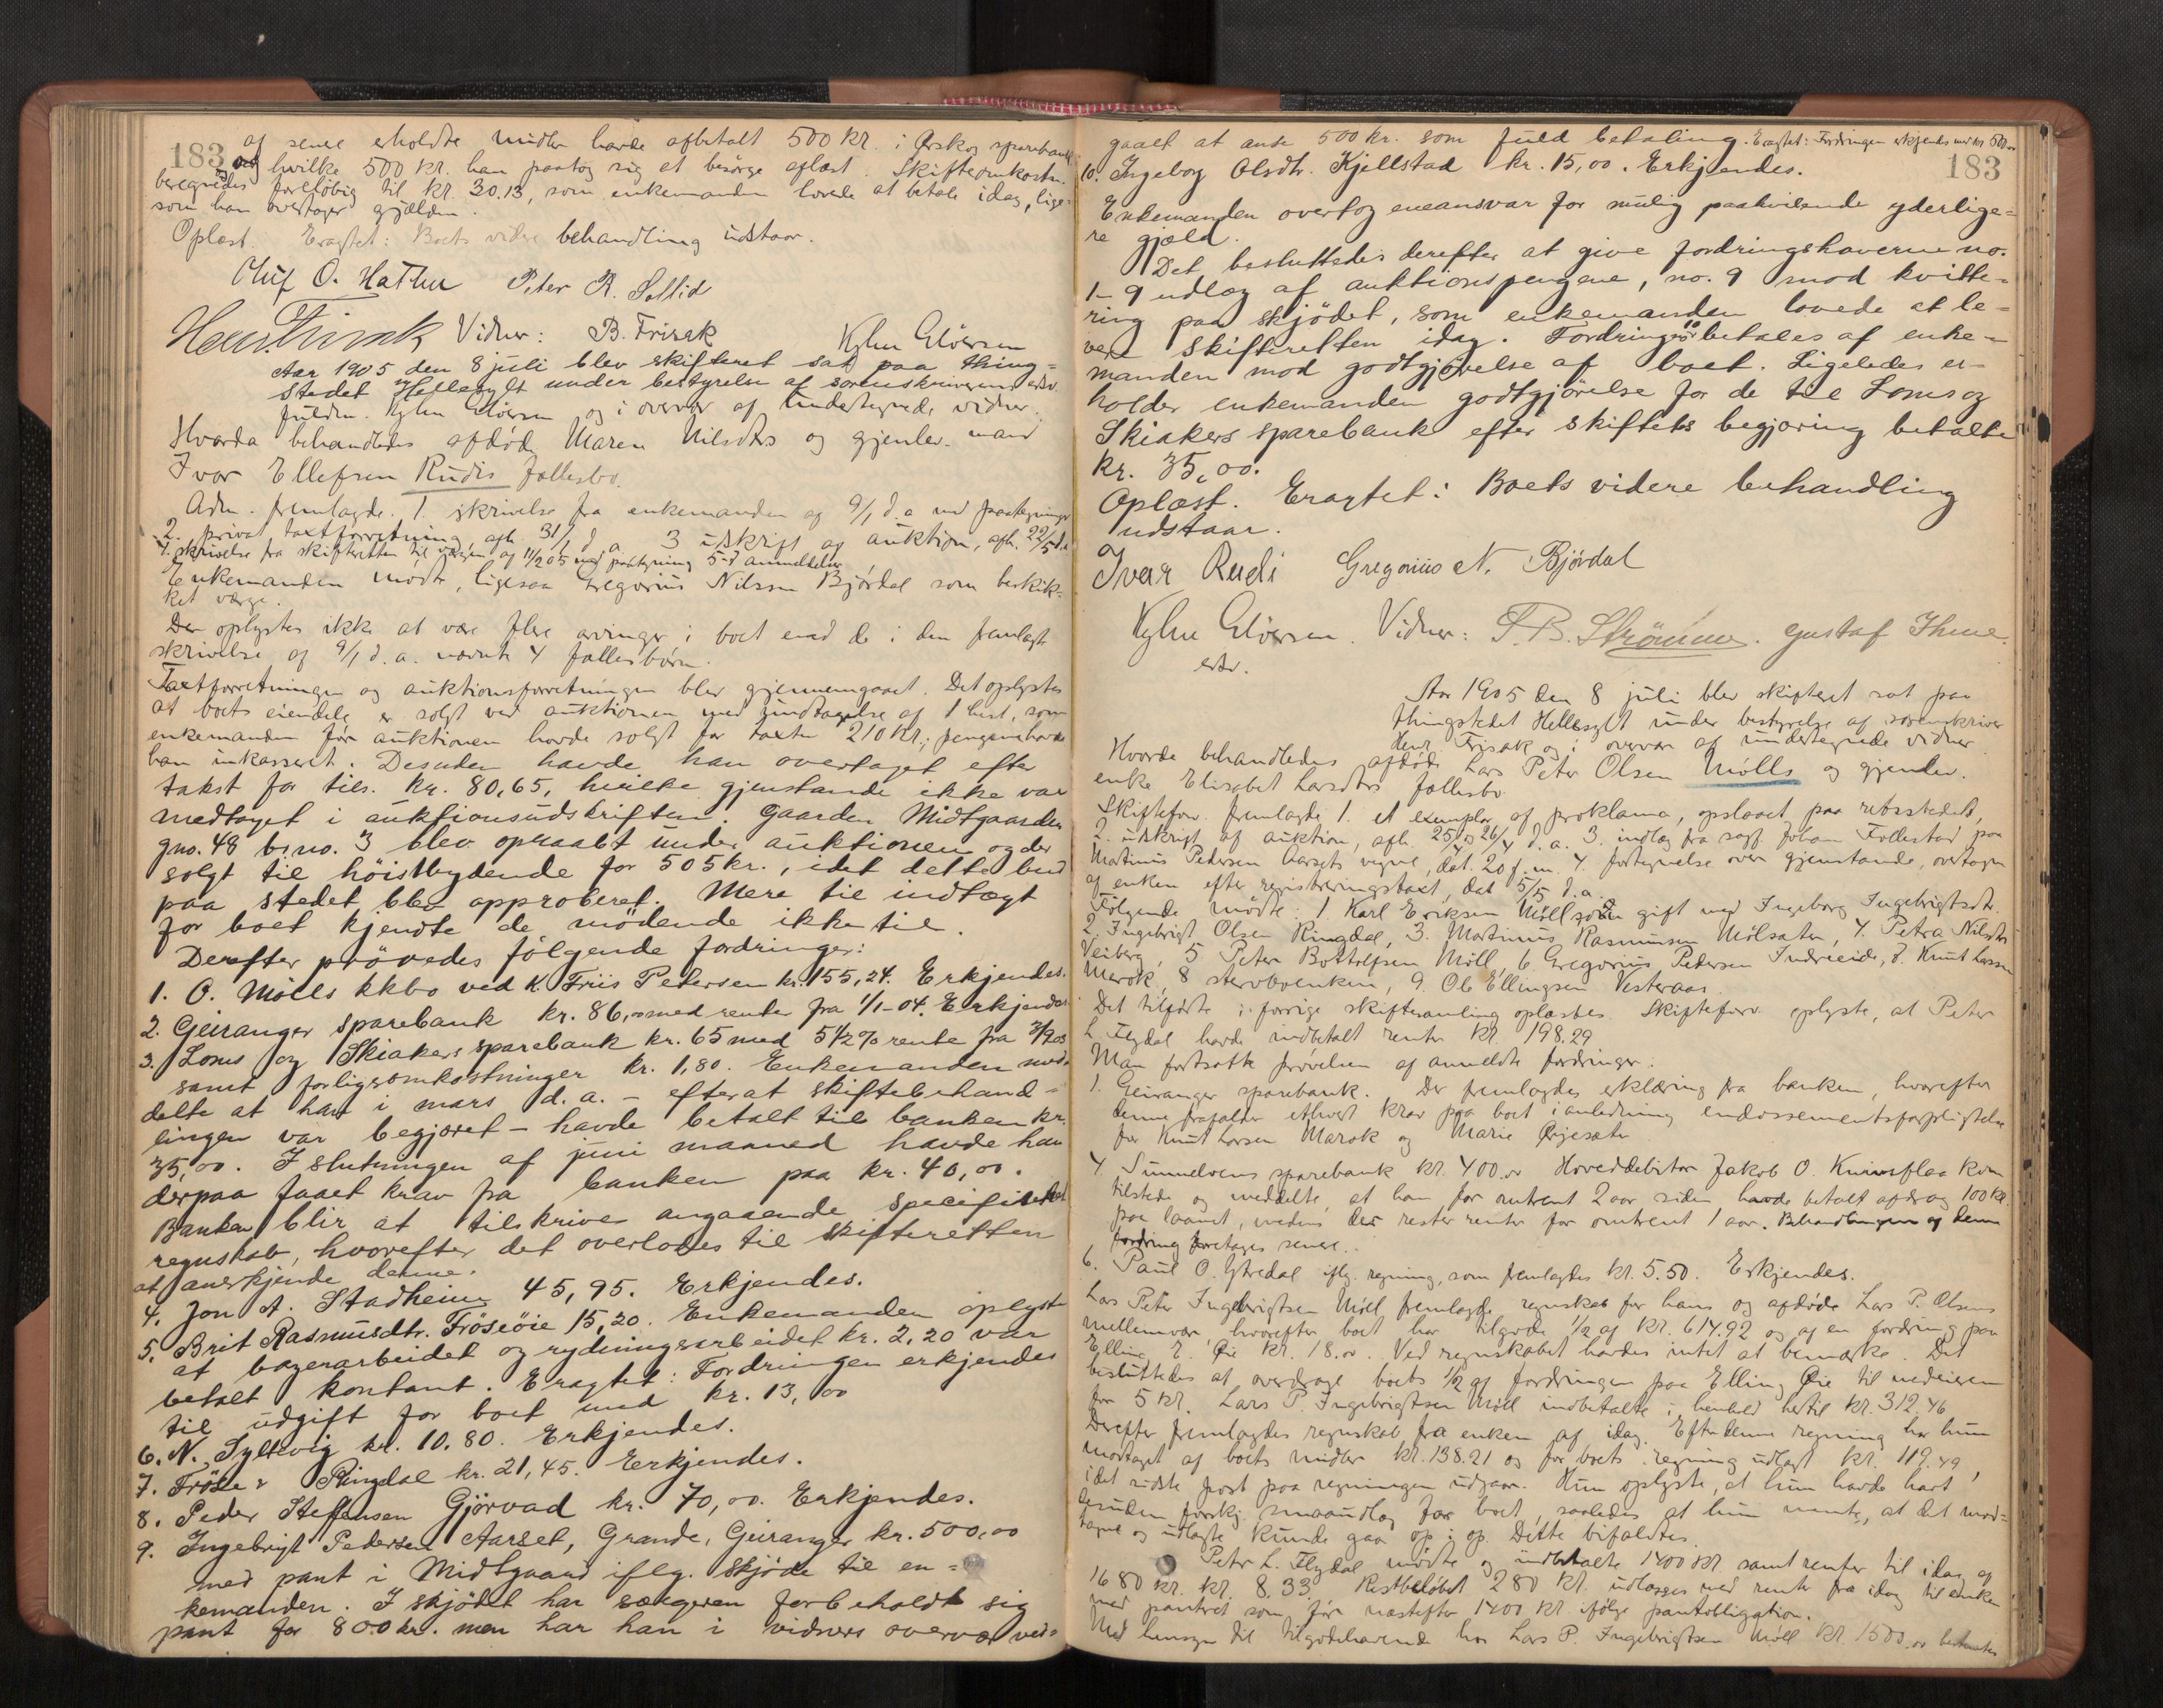 183
af senee erholdte midler havde afbetalt 500 kr. i Ørskog sparebank
og hvilke 500 kr. han paatog sig at besørge aflæst. Skifteomkostn.
beregnedes foreløbig til kr. 30.13, som enkemanden lovede at betale idag, lige=
som han overtager gjælden.
Oplæst. Eragtet: Boets videre behandling udstaar.
Oluf O. Peter R.
Vidner: B. Frisak
Aar 1905 den 8 juli blev skifteret sat paa thing=
stedet Hellesylt under bestyrelse af sorenskriverens edsv.
fuldm. og i overvær af undertegnede vidner.
Hvorda behandledes afdøde Maren Nilsdtrs og gjenlev. mand
Ivar Ellefsen Rudis fællesbo.
Adm. fremlagde. 1. skrivelse fra enkemanden af 9/1 d.a. med paategninger
2. privat taxtforretning, afh. 31/1 d.a. 3 udskrift af auktion, afh. 22/5 d.a.
4. skrivelse fra skifteretten til værgen af 11/2 05 med paategning 5-d anmeldelser
Enkemanden mødte, ligesaa Gregorius Nilssen Bjørdal som beskik=
ket værge.
Der oplystes ikke at være flere arvinger i boet end de i den fremlagte
skrivelse af 9/1 d.a. nævnte 4 fællesbørn.
Taxtforretningen og auktionsforretningen blev gjennemgaaet. Det oplystes
at boets eiendele er solgt ved auktionen med undtagelse af 1 hest, som
enkemanden før auktionen havde solgt for taxten 210 kr.; pengene havde
han inkasseret. Desuden havde han overtaget efter
takst for tils. kr. 80,65, hvilke gjenstande ikke var
medtaget i auktionsudskriften. Gaarden Midtgaarden
gno. 48 br.no. 3 blev opraabt under auktionen og der
solgt til höistbydende for 505 kr., idet dette bud
paa stedet blev approberet. Mere til indtægt
for boet kjendte de mödende ikke til.
Derefter prövedes fölgende fordringer:
1. O. Mölls kkbo ved K. Friis Petersen kr. 155,24. Erkjendes.
2. Geiranger sparebank kr. 86,00 med renter fra 1/1-04. Erkjendes
3. Loms og Skiakers sparebank kr. 65 med 5 1/2 % rente fra
samt forligsomkostninger kr. 1,80. Enkemanden med=
delte at han i mars d.a. - efterat skiftebehand=
lingen var begjæret - havde betalt til banken kr.
35,00. I slutningen af juni maaned havde han
derpaa faaet krav fra banken paa kr. 40,00.
Banken blir at tilskrive angaaende specificeret
regnskab, hvorefter det overlodes til skifteretten
at anerkjende denne.
4. Jon A. Stadheim 45,95. Erkjendes.
5. Brit Rasmusdtr. Fröseöie 15,20. Enkemanden oplyste
at bagerarbeidet og rydningsarbeidet kr. 2,20 var
betalt kontant. Eragtet: Fordringen erkjendes
til udgift for boet med kr. 13,00
6. N. Sylkvig kr. 10.80. Erkjendes.
7. Ringdal kr. 21,45. Erkjendes.
8. Peder Steffensen Gjörvad kr. 70,00. Erkjendes.
9. Ingebrigt Pedersen Aarset, Grande, Geiranger kr. 500,00
med pant i Midtgaard iflg. skjöde til en=
kemanden. I skjödet har sælgeren forbeholdt sig
pant for 800 kr. men har han i vidners overvær ved=
gaaet at anse 500 kr. som fuld betaling. Eragtet: Fordringen erkjendes med kr. 500,00
183
10. Ingebog Olsdtr. Kjellstad kr. 15,00. Erkjendes.
Enkemanden overtog eneansvar for mulig paahvilende yderlige=
re gjæld.
Det besluttedes derefter at give fordringshaverne no.
1-9 udlæg af auktionspengene, no. 9 mod kvitte=
ring paa skjödet, som enkemanden lovede at le=
vere skifteretten idag. Fordring no 10 betales af enke=
manden mod godtgjörelse af boet. Ligeledes er=
holder enkemanden godtgjörelse for de til Loms og
Skiakers sparebank efter skiftets begjæring betalte
kr. 35,00.
Oplæst. Eragtet: Boets videre behandling
udstaar.
Ivar Rudi Gregoriüs N. Björdal
Vidner: P.B. Strömme. Gustaf Thue.
edsv.
Aar 1905 den 8 juli blev skifteret sat paa
thingstedet Hellesylt under bestyrelse af sorenskriver
Henr. Frisak og i overvær af undertegnede vidner
Hvorda behandledes afdøde Lars Peter Olsen Mölls og gjenlev.
enke Elisabet Larsdtrs fællesbo.
Skifteforv. fremlagde 1. et exemplar af proklama, opslaaet paa retsstedet,
2. udskrift af auktion, afh. 25 og 26/4 d.a. 3. indlæg fra sagf. Johan Follestad paa
Martinus Pedersen Aarsets vegne, dat. 20 f.m. 4. fortegnelse over gjenstande, overtagne
af enken efter registreringstaxt, dat. 5/5 d.a.
Følgende mødte: 1. Karl Eriksen Möll, som gift med Ingeborg Ingebrigtsdtr.
2. Ingebrigt Olsen Ringdal, 3. Martinus Rasmussen Mölsæter, 4. Petra Nilsdtr
Veiberg, 5 Peter Bottolfsen Möll, 6 Gregorius Pedersen Indreeide, 7. Knut Larsen
Merok, 8 stervboenken, 9. Ole Ellingsen Vesteraas.
Det tilførte i forrige skiftesamling oplæstes. Skifteforv. oplyste, at Peter
L. Flydal havde indbetalt renter kr. 198.29
Man fortsatte prøvelsen af anmeldte fordringer.
1. Geiranger sparebank. Der fremlagdes erklæring fra banken, hvorefter
denne frafalder ethvert krav paa boet i anledning endossementsforpligtelse
for Knut Larsen Marok og Marie
4. Sunnelvens sparebank kr. 400.00 Hoveddebitor Jakob O. kom
tilstede og meddelte, at han for omtrent 2 aar siden havde betalt afdrag 100 kr.
paa laanet, medens der rester renter for omtrent 1 aar. Behandlingen af denne
fordring foretages senere.
6. Paul O. Gjredal iflg. regning, som fremlagdes kr. 5.50. Erkjendes.
Lars Peter Ingebrigtsen Möll fremlagde regnskab for hans og afdøde Lars P. Olsens
mellemvær, hvorefter boet har tilgode 1/2 af kr. 614.92 og af en fordring paa
Elling E. Øie kr. 18.00. Ved regnskabet havdes intet at bemærke. Det
besluttedes at overdrage boets 1/2 af fordringen paa Elling Øie til medeieren
for 5 kr. Lars P. Ingebrigtsen Möll indbetalte i henhold hertil kr. 312.46
Derefter fremlagdes regnskab fra enken af idag. Efter denne regning har hun
modtaget af boets midler kr. 138.21 og for boets regning udlagt kr. 119.49,
idet sidste post paa regningen udgaar. Hun oplyste, at hun havde havt
desuden forskj. smaaudlæg for boet, saaledes at hun mente, at det mod=
tagne og udlagte kunde gaa op i op. Dette bifaldtes.
Peter L. Flydal mødte og indbetalte 1400 kr. samt renter til idag af
1680 kr. kr. 8.33. Restbeløbet 280 kr. udlægges med rente fra idag til enken
med panteret som før næstefter 1400 kr. ifølge pantobligation.
Med hensyn til tilgodehavende hos Lars P. Ingebrigtsen Möll kr. 1500.00